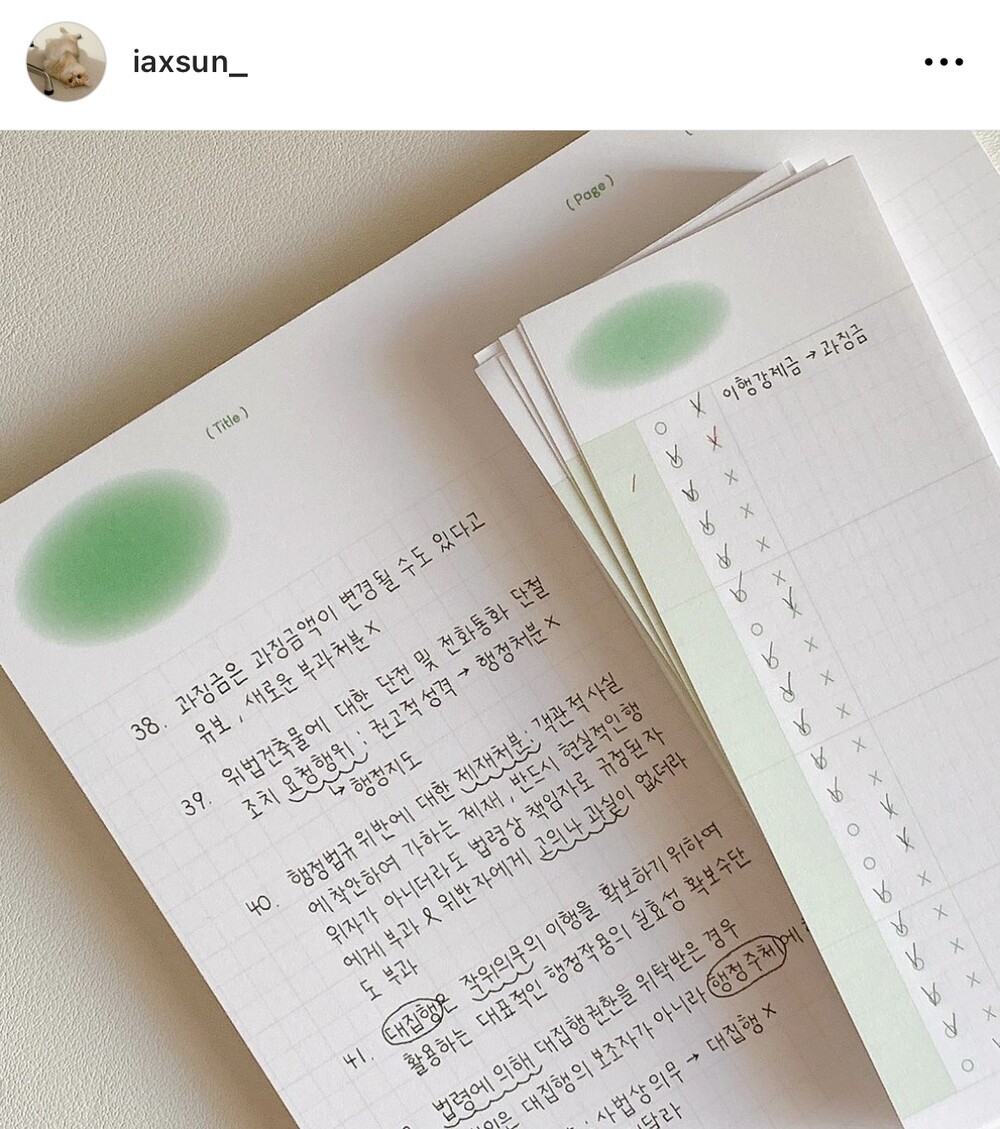 iaxsun_
(Page)
(Title)
이행강제금 → 과징금
O X
38. 과징금은 과징금액이 변경될 수도 있다고
유보, 새로운 부과처분 X
39. 위법건축물에 대한 단전 및 전화통화 단절
조치 요청행위; 권고적 성격 → 행정처분 X
↳ 행정지도
40. 행정법규 위반에 대한 제재처분; 객관적 사실
에 착안하여 가하는 제재, 반드시 현실적인 행
위자가 아니더라도 법령상 책임자로 규정된 자
에게 부과 & 위반자에게 고의나 과실이 없더라
도 부과
41. 대집행은 작위의무의 이행을 확보하기 위하여
활용하는 대표적인 행정작용의 실효성 확보수단
법령에 의해 대집행권한을 위탁받은 경우
대집행의 보조자가 아니라 행정주체에
사법상 의무 → 대집행 X